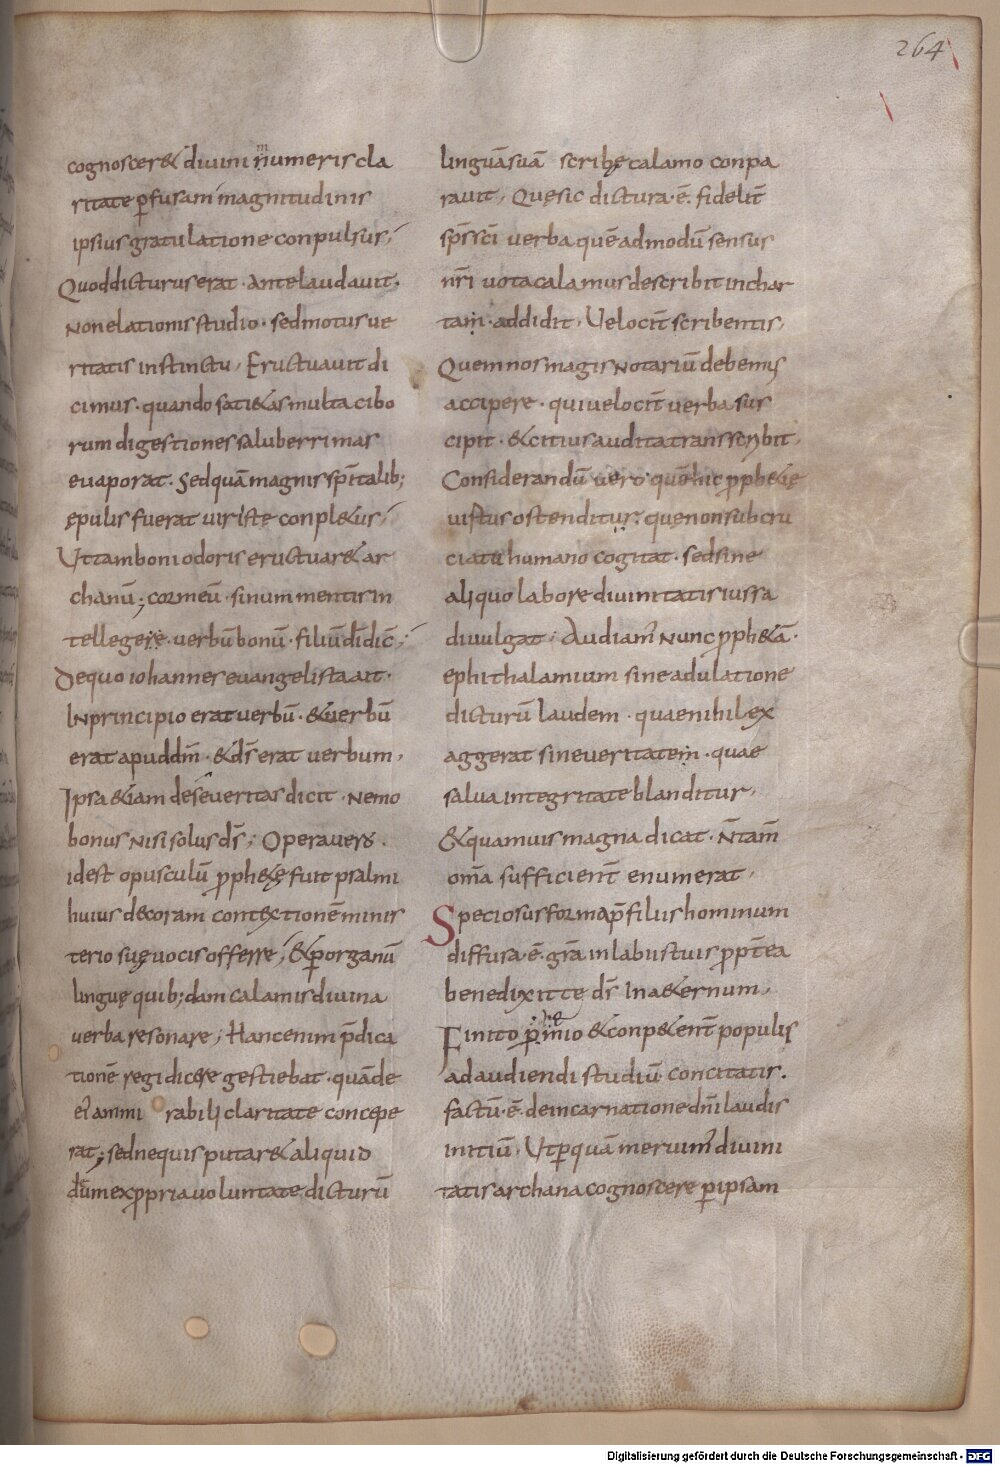 264
cognoscer& diuini m̅ numeris cla
ritate ꝑfusam magnitudinis
ipsius gratulatione conpulsus;
Quod dicturus erat · ante laudauit ·
Non elationis studio · sed motus ue
ritatis instinctu, Eructuauit di
cimus · quando sati&as multa cibo
rum digestiones saluberrimas
euaporat · Sed quā magnis sp̅italib;
ępulis fuerat uir iste conpl&us;
Ut tam boni odoris eructuar& ar
chanū; cor meū · sinum mentis in
tellegere · uerbū bonū · filiū dī dic̅;
De quo iohannes euangelista ait ·
IN principio erat uerbū · & uerbū
erat apud dm̅ · & ds̅ erat uerbum,
Ipsa &iam de se ueritas dicit · Nemo
bonus Nisi solus ds̅; Opera uero ·
id est opusculū ꝓph&ę fuit psalmi
huius decoram contextionē minis
terio suę uocis offerre, & ꝑ organū
linguę quib; dam calamis diuina
uerba resonare; Hanc enim p̅dica
tionē regi dicere gestiebat · quā de
ei' ammi rabili claritate concepe
rat; sed ne quis putar& aliquid
dūm ex ꝓpria uoluntate dicturū
linguā suā scribę calamo conpa
rauit, Quę sic dictura · ē · fidelit̅
sp̅s sc̅i uerba quē admodū sensus
nr̅i uota calamus describit in char
tam · addidit, Uelocit̅ scribentis,
Quem nos magis Notariū debemus
accipere · qui uelocit̅ uerba sus
cipit · & citius audita transscribit,
Considerandū uero · quē hic ꝓph&ę
uirtus ostenditur · quę non sub cru
ciatu humano cogitat · sed sine
aliquo labore diuinitatis iussa
diuulgat; Audiam' Nunc ꝓph&ā ·
ephithalamium sine adulatione
dicturū laudem · quae nihil ex
aggerat sine ueritatem · quae
salua integritate blanditur,
& quamuis magna dicat · N̅ tam̅
om̅a sufficient̅ enumerat,
Speciosus forma p̅ filiis hominum
diffusa · ē · gr̅a in labiis tuis ꝓpt̅ea
benedixit te ds̅ In a&ernum,
Finito p̅m̅io & conp&ent̅ populis
ad audiendi studiū concitatis ·
factū · ē · de incarnatione dn̅i laudis
initiū, Ut ꝑ quā meruim' diuini
tatis archana cognoscere ꝑ ipsam
Digitalisierung gefördert durch die Deutsche Forschungsgemeinschaft - DFG